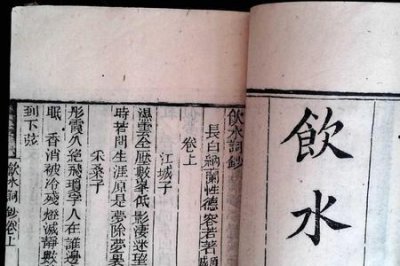 飲水
飲水詞鈔
長白納蘭性德容若著
卷上
江城子
濕雲全壓數峯低影淒迷望
時若問生涯原是夢除夢裏
采桑子
彤霞久絕飛瓊字人在誰邊
眠 香消被冷殘燈滅靜數
到下弦
飲水詞鈔卷上